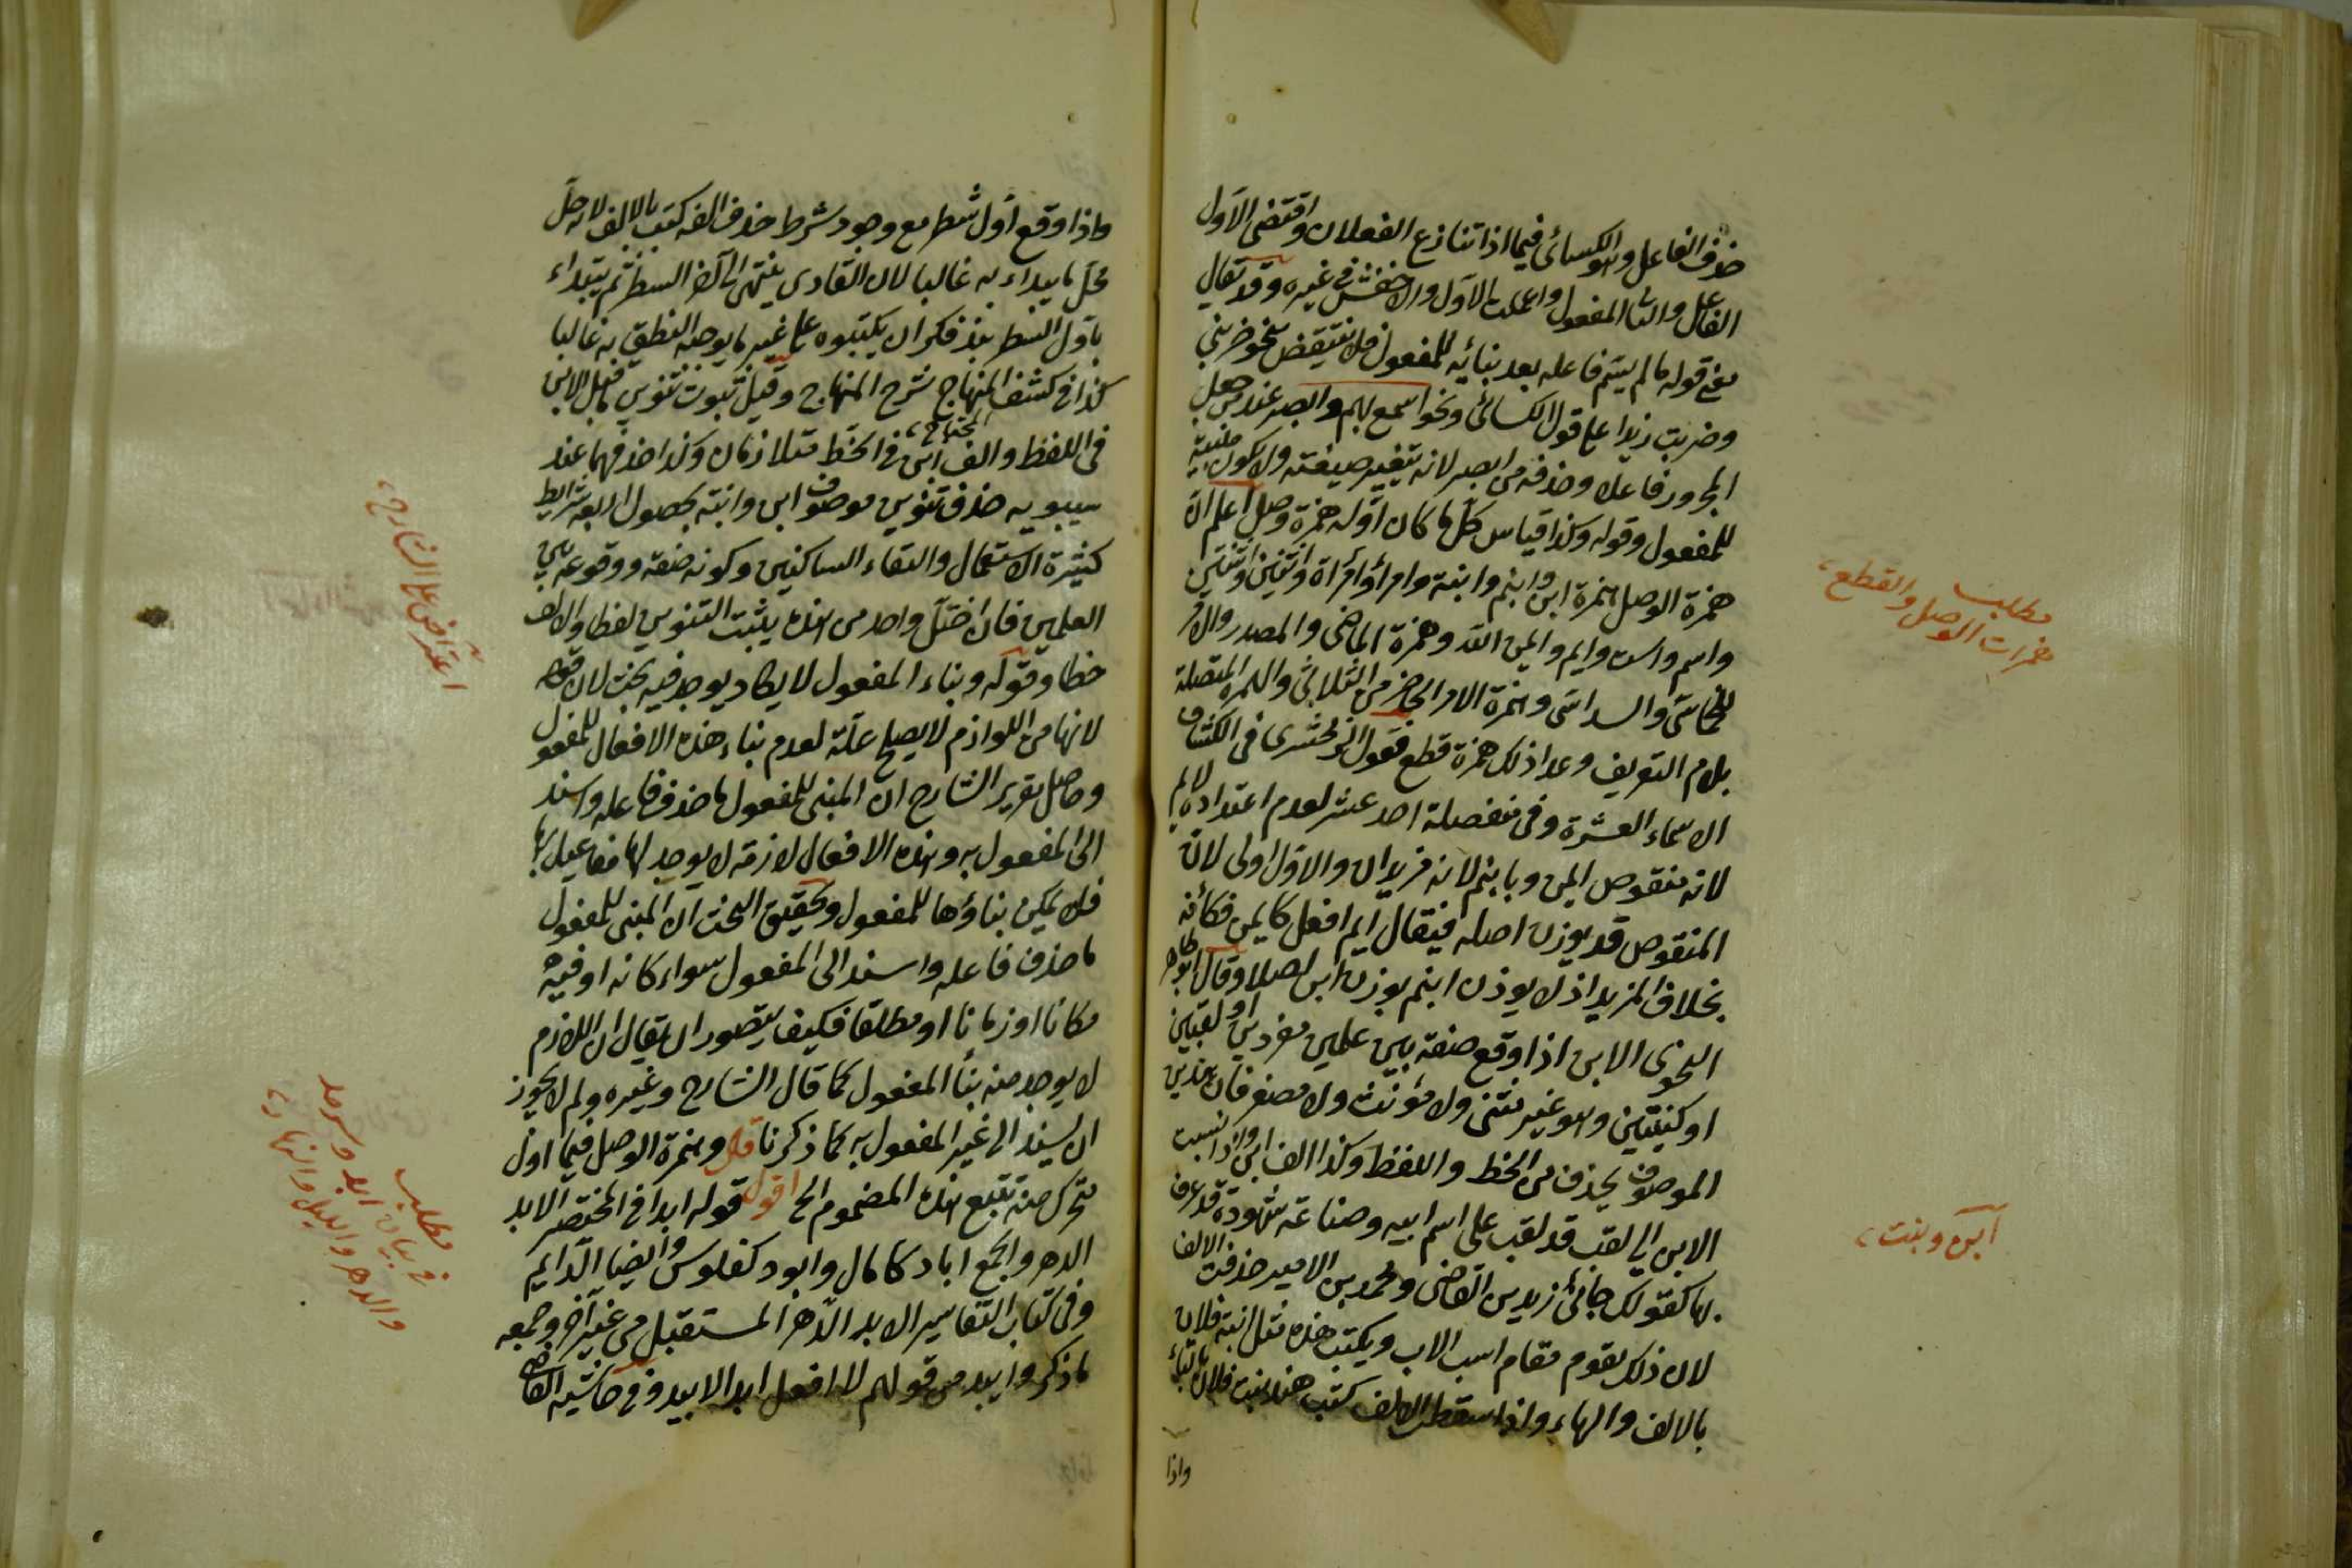 حذف الفاعل وهو الكسائى فيما اذا تنازع الفعلان واقتضى الاول
الفاعل والثانى المفعول واعملت الاول والاخفش فى غيره وقد يقال
معنى قوله ما لم يسم فاعله بعد بنائه للمفعول فلا ينتقض بنحو ضربنى
وضربت زيدا على قول الكسائى ونحو اسمع بهم وابصر عند من جعل
المجرور فاعلا وحذفه من ابصر لانه يتغير صيغته ولا يكون مبنية
للمفعول وقوله وكذا قياس كل ما كان اوله همزة وصل اعلم ان
همزة الوصل همزة ابن وابنم وابنة وامرأ وامرأة واثنين واثنتين
واسم واست وايم وايمن الله وهمزة الماضى والمصدر والامر
للخماسى والسداسى وهمزة الامر الحاضر من الثلاثى والهمزة المتصلة
بلام التعريف وعدا ذلك همزة قطع فقول الزمخشرى فى الكشاف
الاسماء العشرة وفى مفصله احد عشر لعدم اعتداده لايم
لانه منقوص ايمن وبابنم لانه مزيد ابن والاول اولى لان
المنقوص قد يوزن اصله فيقال ايم افعل كايمن فكأنه
بخلاف المزيد اذ لا يوزن ابنم بوزن ابن اصلا وقال ابو طاهر
النحوى الابن اذا وقع صفة بين علمين مفردين او لقبين
او كنيتين وهو غير مثنى ولا مؤنث ولا مصغر فان تنوين
الموصوف يحذف من الخط واللفظ وكذا الف ابن واذا نسبت
الابن الى لقب قد لقب على اسم ابيه وصناعة مشهورة قد عرف
بها كقولك جائنى زيد بن القاضى ومحمد بن الامير حذفت الالف
لان ذلك يقوم مقام اسب الاب ويكتب هذه مثل ابنة فلان
بالالف والهاء واذا اسقطت الالف كتب هند بنت فلان بالتاء
واذا
مطلب
همزات الوصل والقطع
ابن وبنت
واذا وقع اول شطر مع وجود شرط حذف الفه كتب بالالف لانه حل
محل ما يبداء به غالبا لان القارى ينتهى الى آخر السطر ثم يبتداء
باول السطر فكر ان يكتبوه على غير ما يوجبه النطق به غالبا
كذا فى كشف المنهاج شرح المنهاج وقيل ثبوت تنوين ما قبل الابن
المحتاج
فى اللفظ والف ابن فى الخط متلازمان وكذا حذفهما عند
سيبويه حذف تنوين موصوف ابن وابنة بحصول اربعة شرايط
كثيرة الاستعمال والتقاء الساكنين وكونه صفة ووقوعه بين
العلمين فان اختل واحد من هذه يثبت التنوين لفظا والالف
خطا وقوله وبناء المفعول لا يكاد يوجد فيه بحث لان قوله
لانها من اللوازم لا يصلح علة لعدم بناء هذه الافعال للمفعول
وحاصل تقرير الشارح ان المبنى للمفعول ما حذف فاعله واسند
الى المفعول به وهذه الافعال لازمة لا يوجد لها مفاعيل بها
فلا يمكن بناؤها للمفعول وتحقيق البحث ان المبنى للمفعول
ما حذف فاعله واسند الى المفعول سواء كان به او فيه
مكانا او زمانا او مطلقا فكيف يتصور ان يقال ان اللازم
لا يوجد منه بناء المفعول كما قال الشارح وغيره ولم لا يجوز
ان يسند الى غير المفعول به كما ذكرنا قال وهمزة الوصل فيما اول
متحرك منه تتبع هذه المضموم الخ اقول قوله ابدا فى المختصر الابد
الدهر والجمع اباد كامال وابود كفلوس وايضا الدايم
وفى كتاب التفاسير الابد الدهر المستقبل من غير آخر وجمعه
ما ذكر وابيد من قولهم لا افعل ابد الابيد وفى حاشيه القاضى
اعتراض على الشارح
مطلب
فى بيان ابد وسرمد
والدهر والليل والنهار